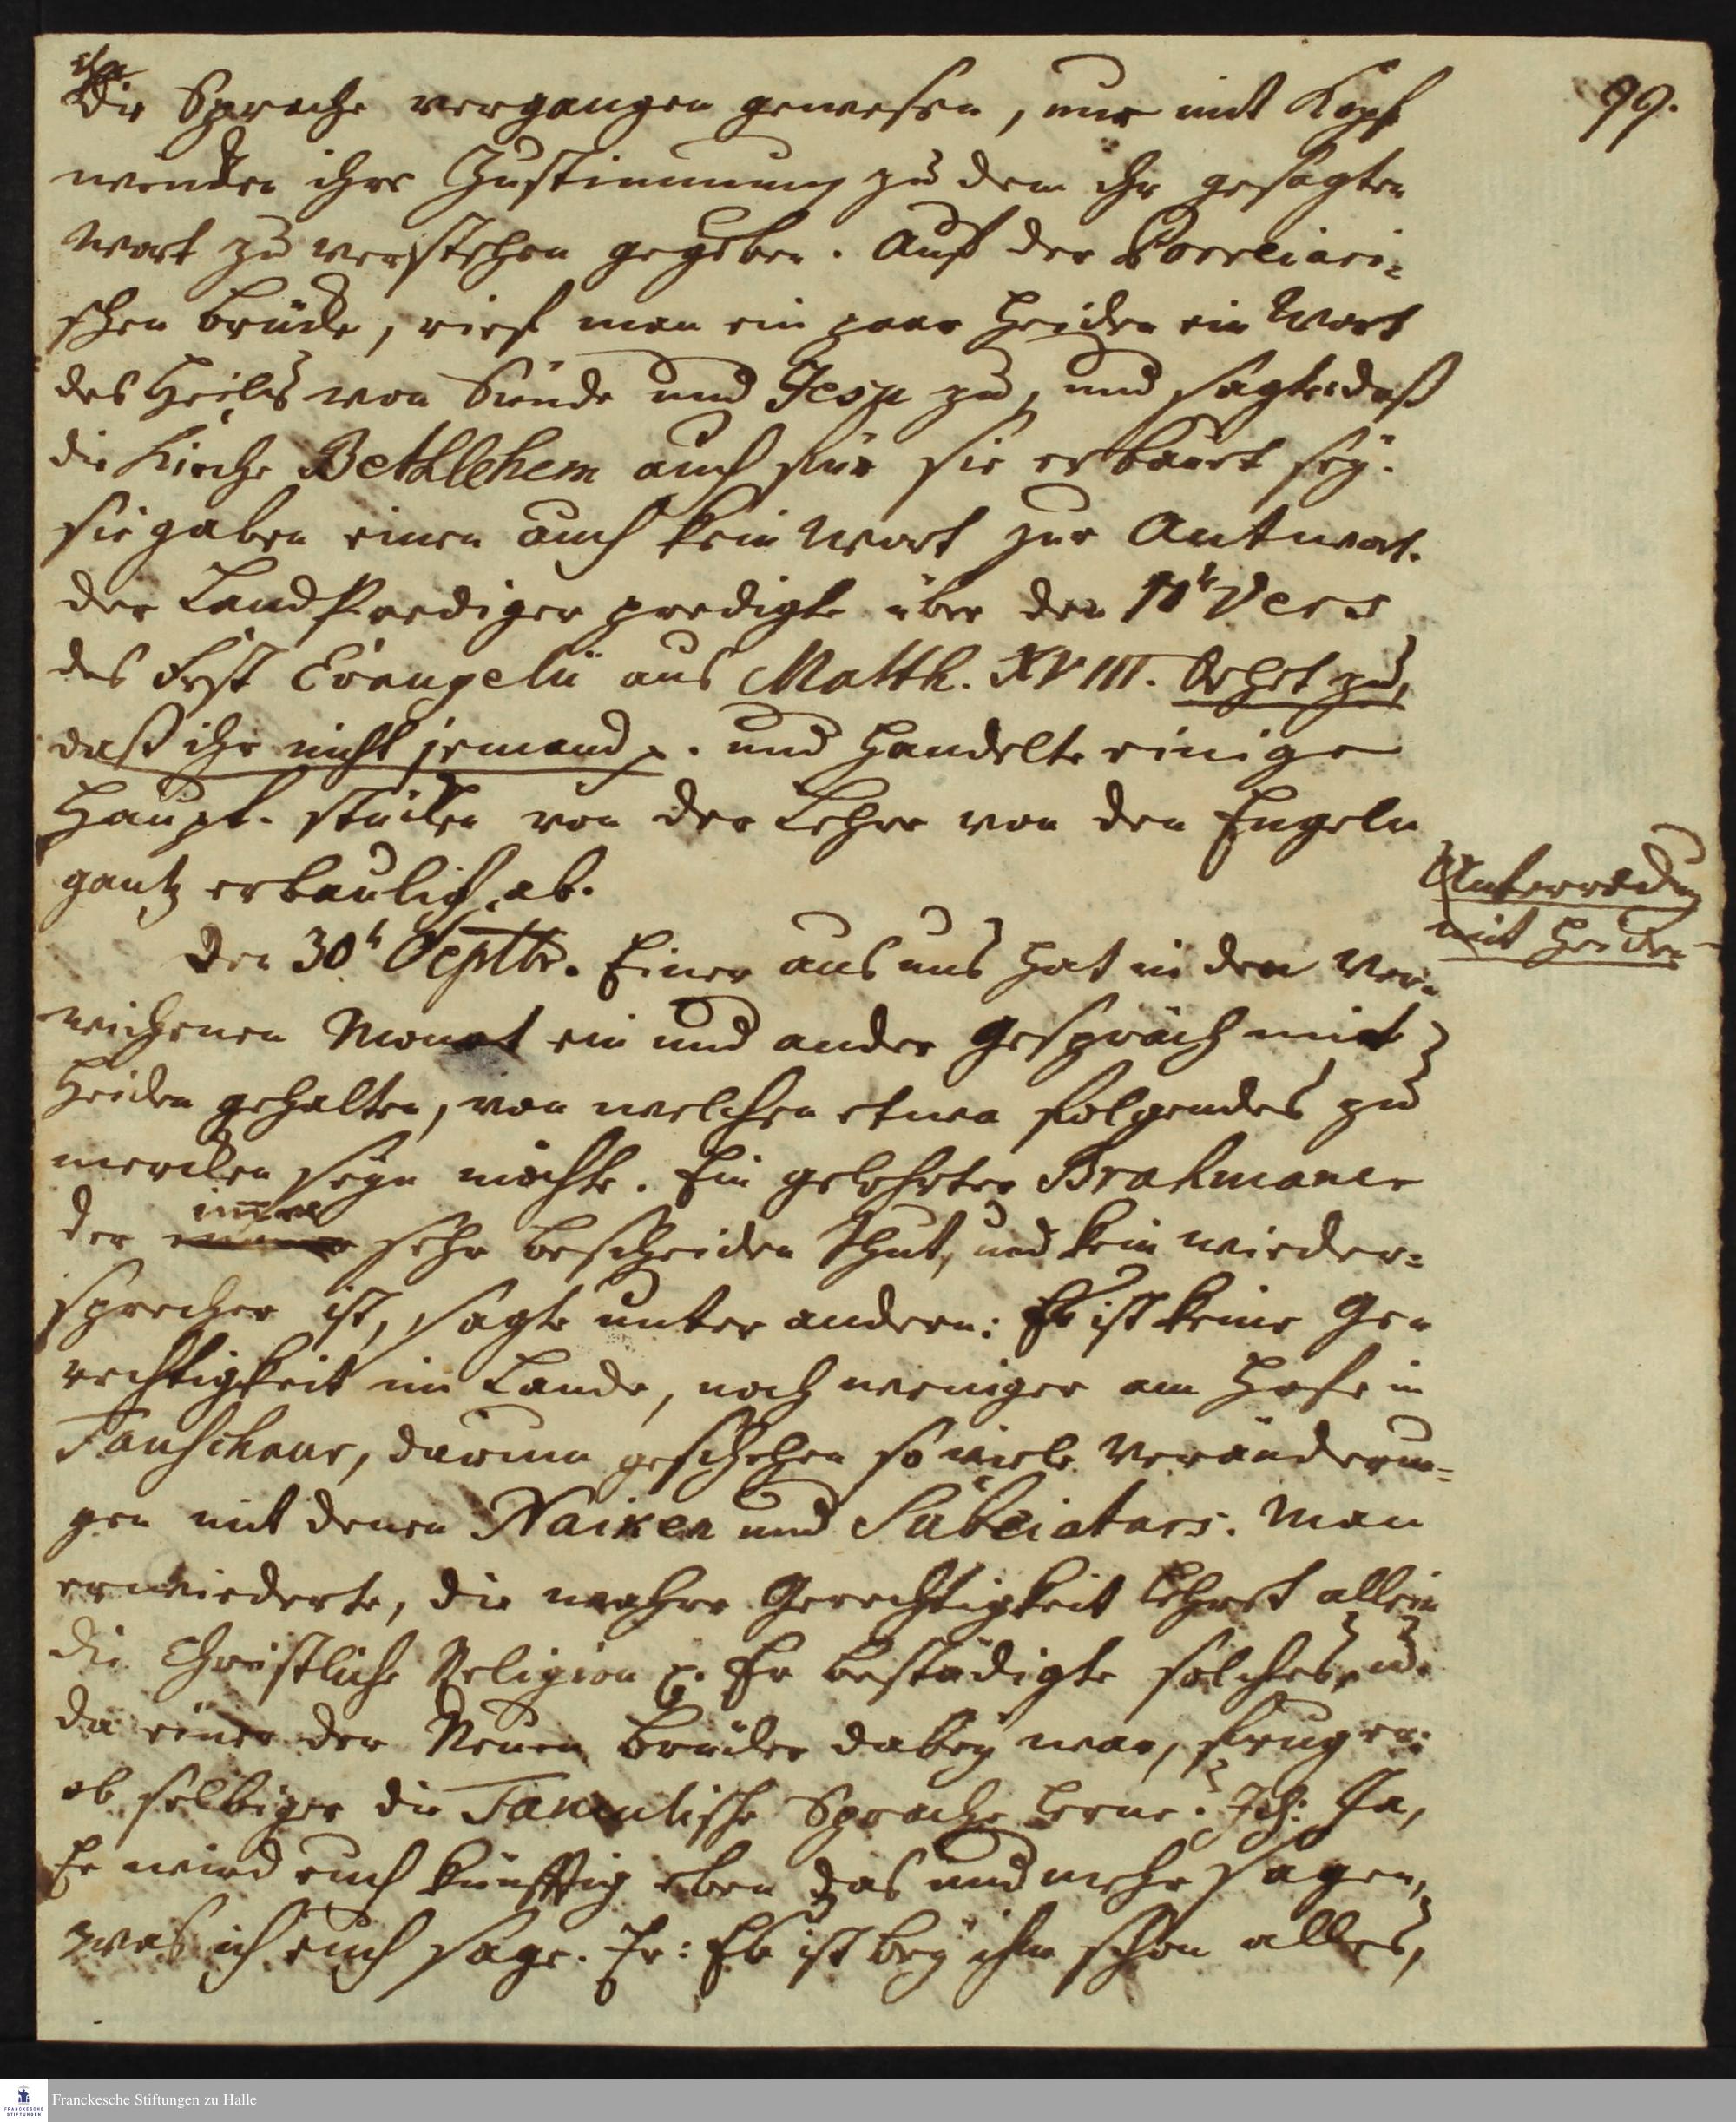 99.
ihr
die Sprache vergangen gewesen, nur mit Kopf
wincken ihre Zustimmung zu dem ihr gesagten
Wort zu verstehen gegeben. Auf der Porreiari-
schen brücke, rief man ein paar Heiden ein Wort
des Heils von Sünde und Jesu zu, und sagte daß
die Kirche Bethlehem auch für sie erbauet sey.
sie gaben einen auch kein Wort zur Antwort.
der LandPrediger predigte über den 10t Vers
des Fest Evangelii aus Matth. XVIII. Sehet zu,
daß ihr nicht jemand p. und handelte einige
Haupt-stücke von der Lehre von den Engeln
gantz erbaulich ab.
Unterredung
mit Heiden
Den 30t Septbr. Einer aus uns hat in den ver-
wichenen Monat ein und ander Gespräch mit
Heiden gehalten, von welchen etwa folgendes zu
mercken seyn möchte. Ein gelehrter Brahmaner
der im̅er sehr bescheiden thut, und kein wieder-
sprecher ist, sagte unter andern: Es ist keine Ge-
rechtigkeit im Lande, noch weniger am Hofe in
Tanschaur, darum geschehen so viele Veränderun-
gen mit denen Naiken und Subeiatars. Man
erwiederte, die wahre Gerechtigkeit lehret allein
die Christliche Religion p. Er bestädigte solches, u.
da einer der Neuen Brüder dabey war, frug er:
ob selbiger die Tamulische Sprache lerne? Ich: Ja,
Er wird euch künfftig eben das und mehr sagen,
was ich euch sage. Er: Es ist bey ihm schon alles,
Franckesche Stiftungen zu Halle
FRANCKESCHE
STIFTUNGEN